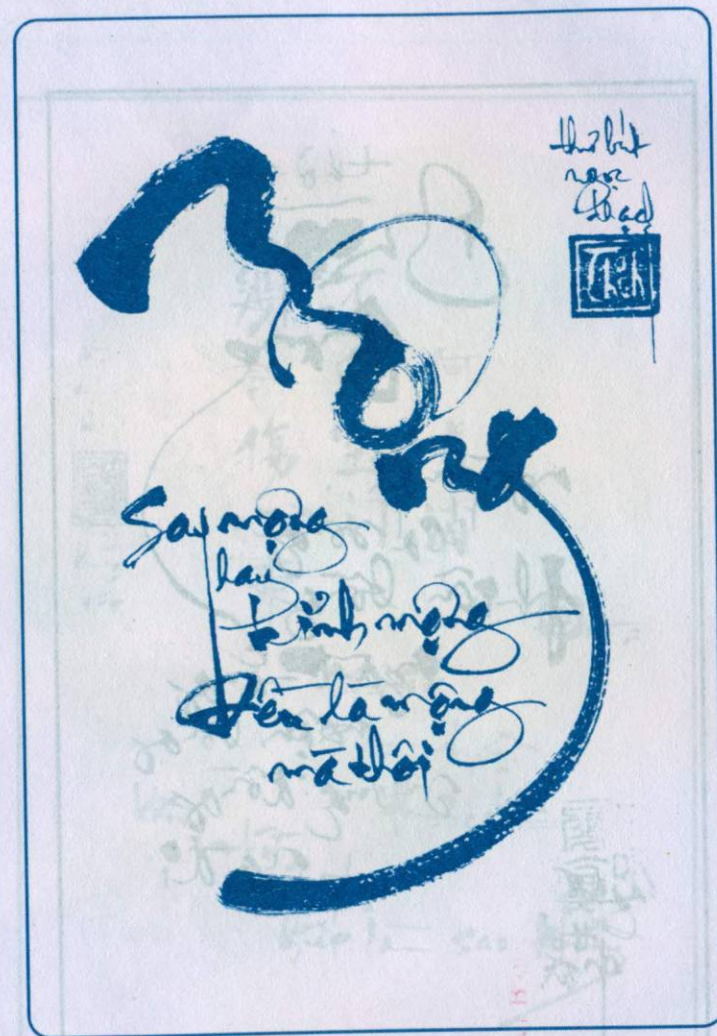 thư bút
ngọc
thạch
Thạch
Mộng
Say mộng
hay
tỉnh mộng
đều là mộng
mà thôi